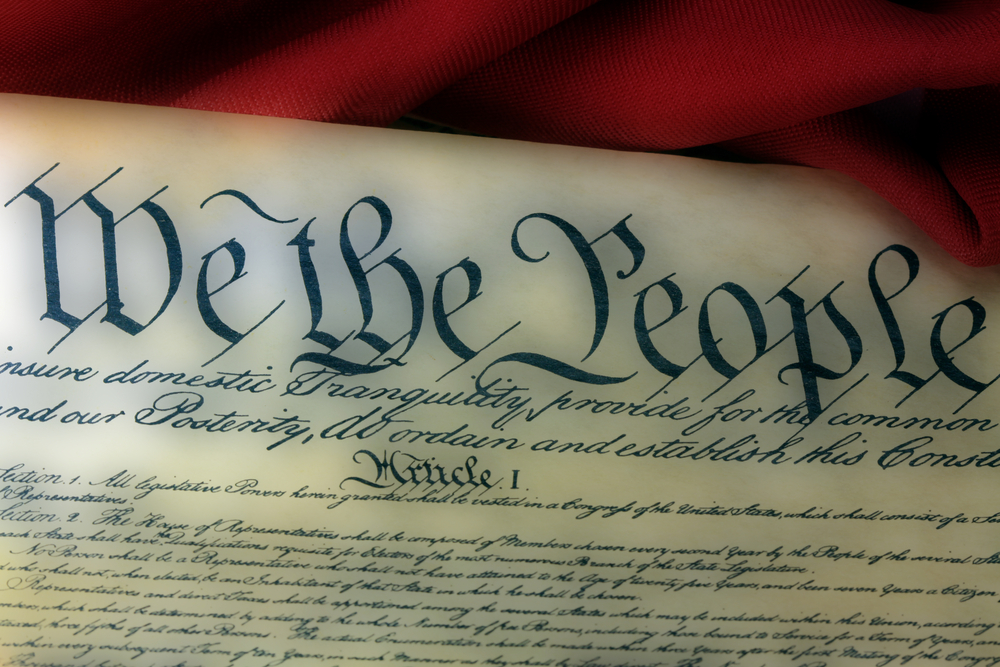 We the People
insure domestic Tranquility, provide for the common
and our Posterity, do ordain and establish this Const
Article. I.
Section. 1. All legislative Powers herein granted shall be vested in a Congress of the United States, which shall consist of a
Representatives.
Section. 2. The House of Representatives shall be composed of Members chosen every second Year by the People of the several
each State shall have the Qualifications requisite for Electors of the most numerous Branch of the State Legislature.
No Person shall be a Representative who shall not have attained to the Age of twenty five Years, and been seven Years a Citizen
who shall not, when elected, be an Inhabitant of that State in which he shall be chosen.
Representatives and direct Taxes shall be apportioned among the several States which may be included within this Union, according
which shall be determined by adding to the whole Number of free Persons, including those bound to Service for a Term of Years, and
three fifths of all other Persons. The actual Enumeration shall be made within three Years after the first Meeting of the
every subsequent Term of ten Years, in such Manner as they shall by